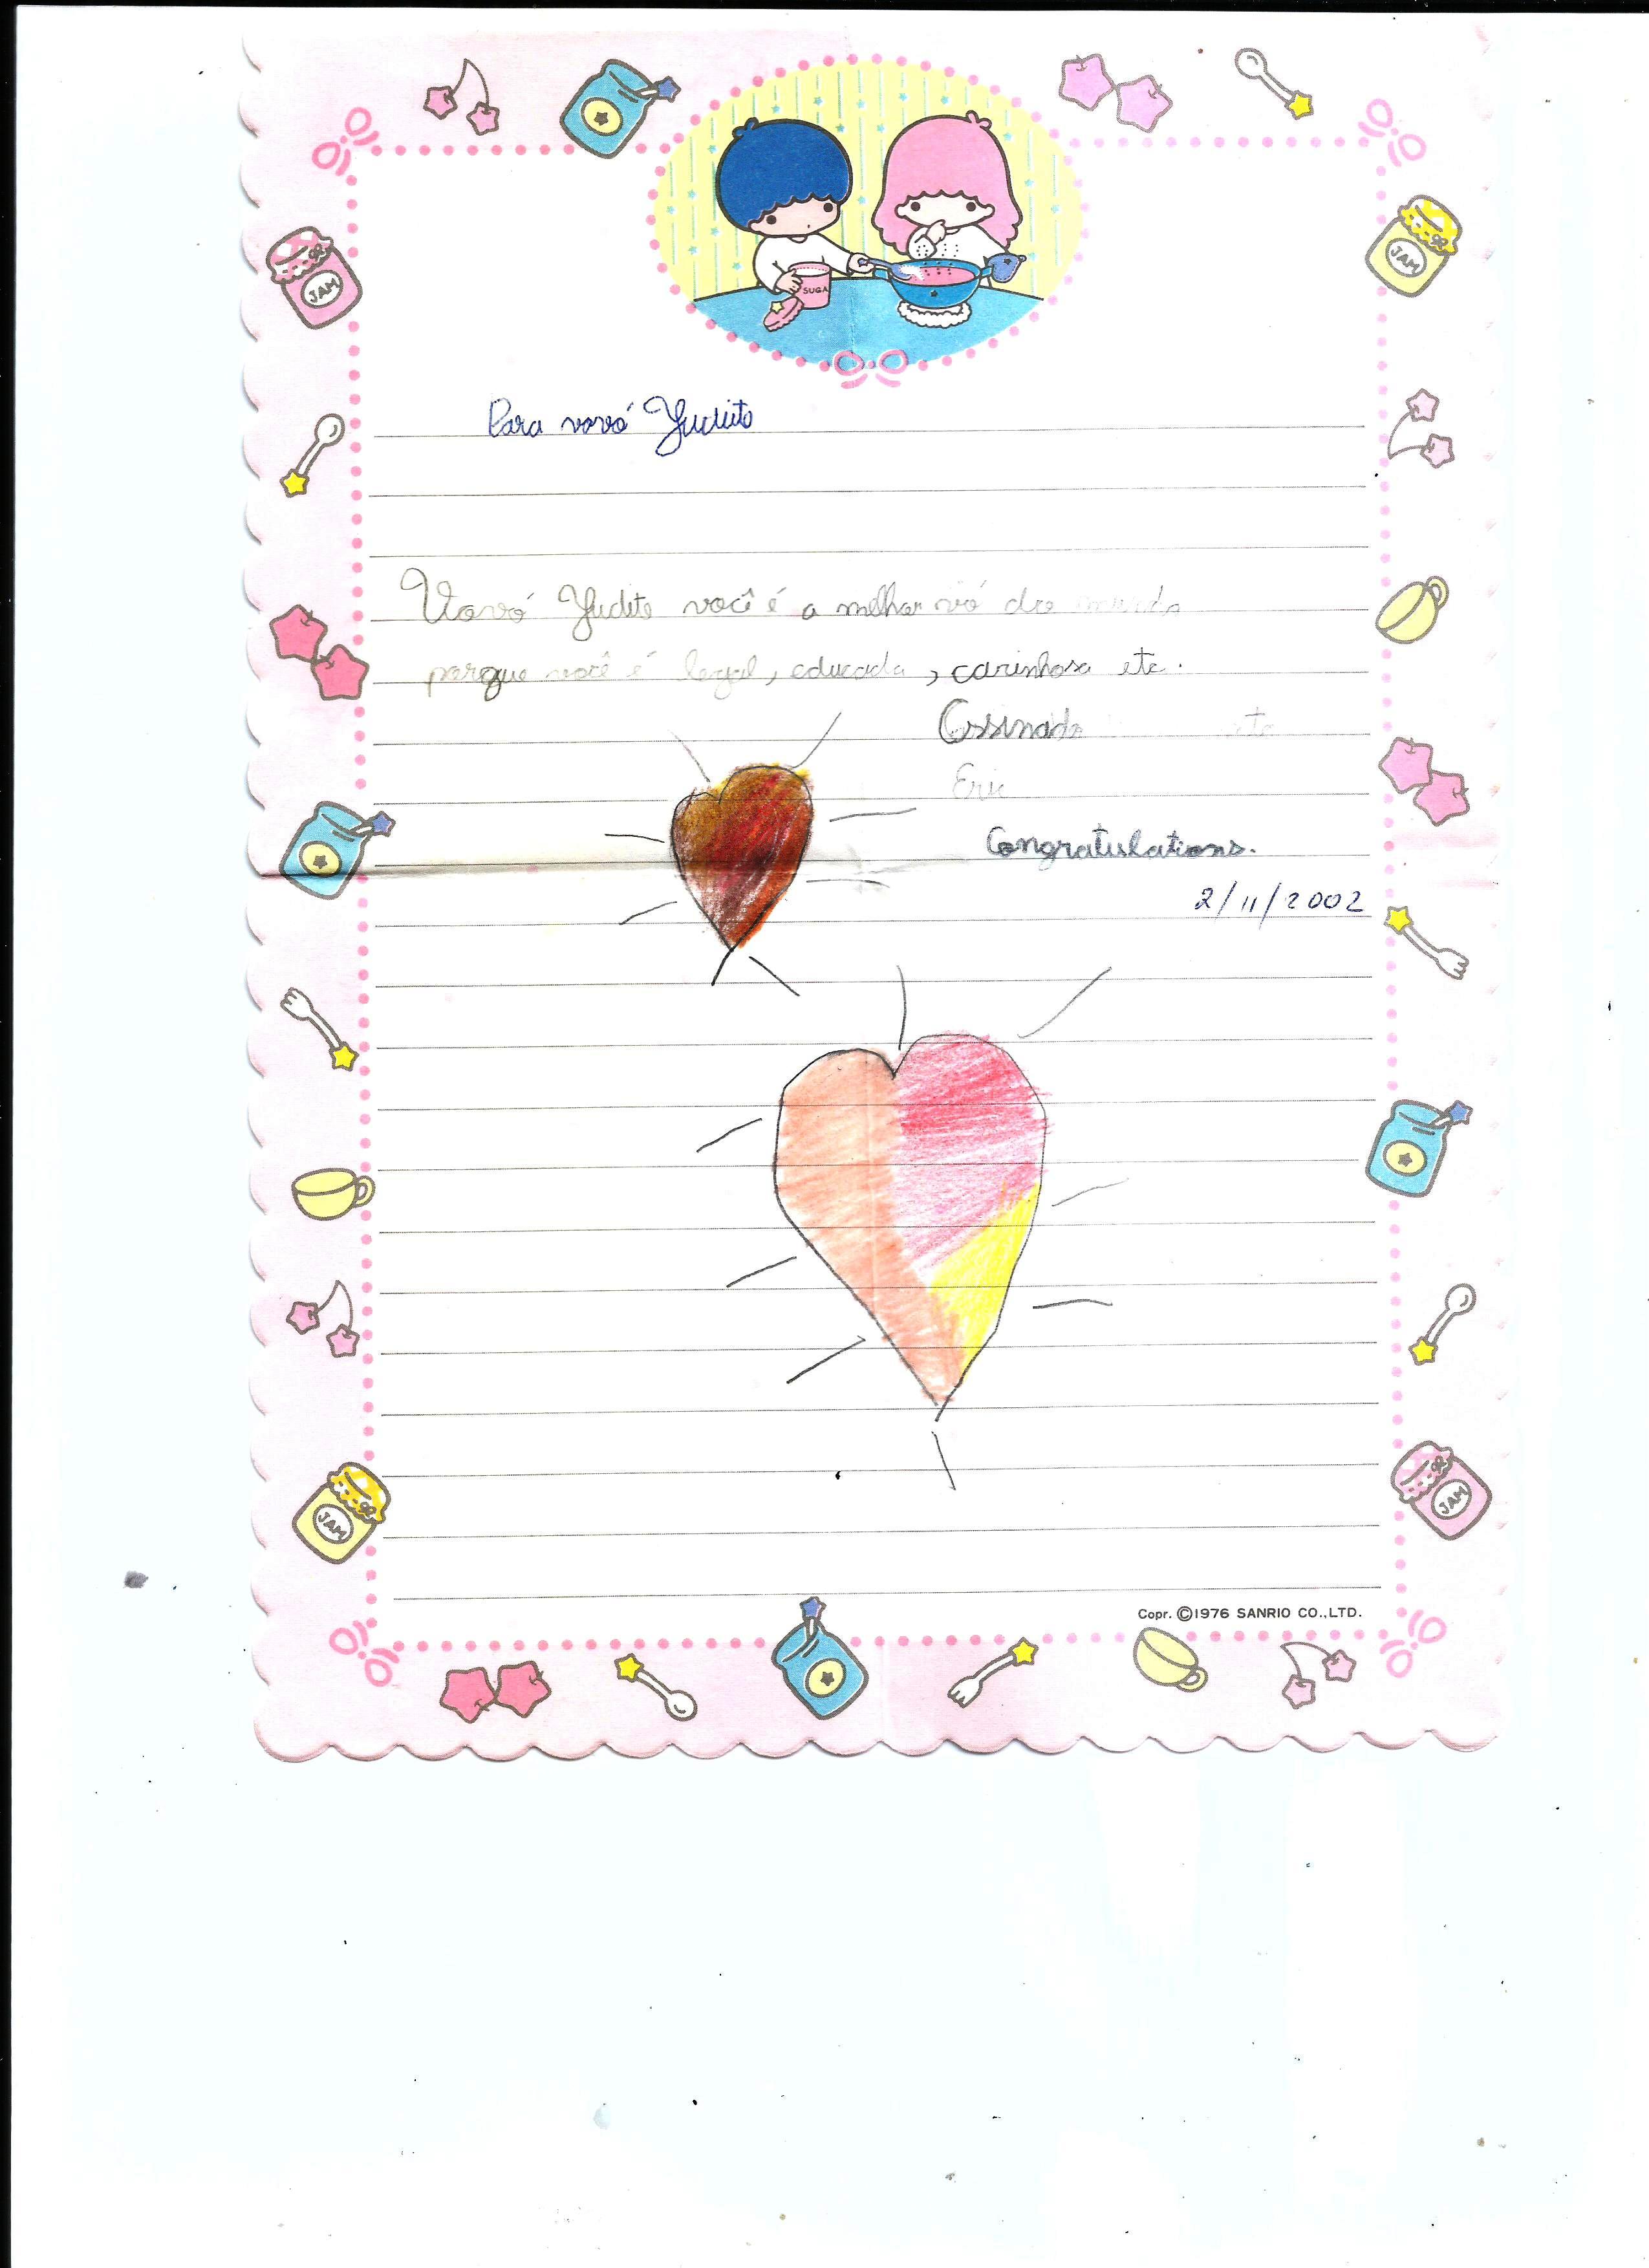 SUGA
JAM
JAM
Para vovó Yudite
Vovó Yudite você é a melhor vó do mundo
porque você é legal, educada, carinhosa etc.
Assinado
Eric
Congratulations.
2/11/2002
JAM
JAM
Copr. ©1976 SANRIO CO.,LTD.